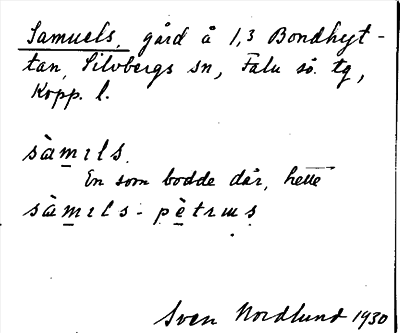 Samuels, gård å 1,3 Bondhyt-
tan, Silvbergs sn, Falu sö. tg,
Kopp. l.
sàmıls.
En som bodde där, hette
sàmıls-pètrɯs
Sven Nordlund 1930